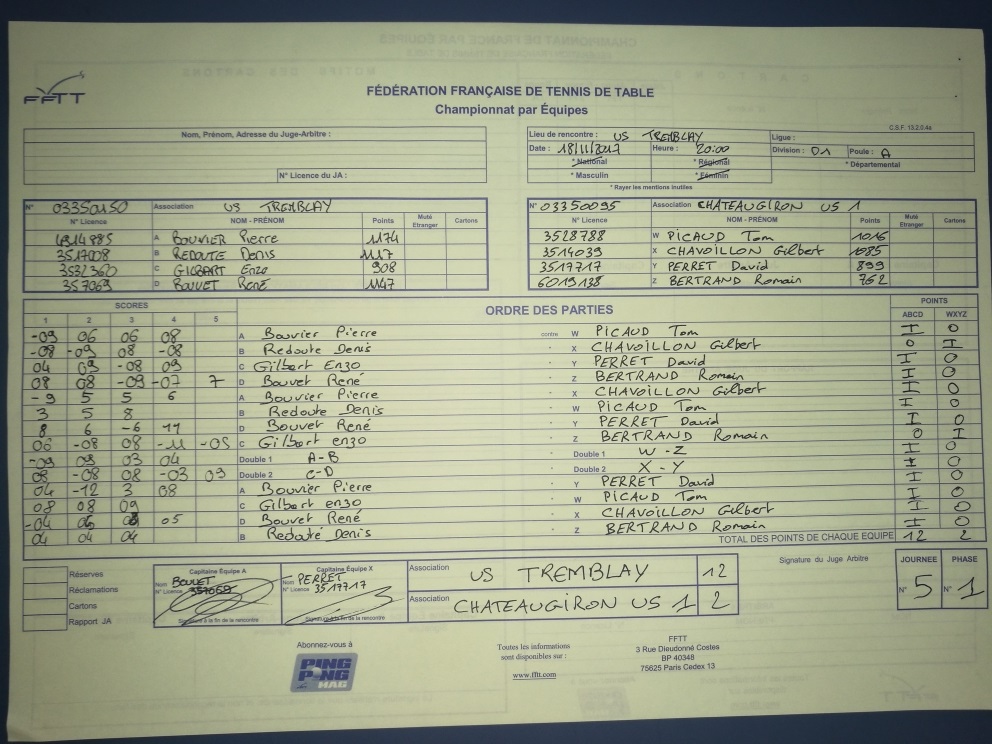 FFTT
FÉDÉRATION FRANÇAISE DE TENNIS DE TABLE
Championnat par Équipes
C.S.F. 13.2.0.4a
Nom, Prénom, Adresse du Juge-Arbitre :
N° Licence du JA :
Lieu de rencontre : US TREMBLAY Ligue :
Date : 18/11/2017 Heure : 20:00 Division : D1 Poule : A
* National * Régional * Départemental
* Masculin * Féminin
* Rayer les mentions inutiles
N° 03350150 Association US TREMBLAY
N° Licence NOM - PRÉNOM Points Muté Etranger Cartons
4914885 A BOUVIER Pierre 1174
3517008 B REDOUTE Denis 1117
3532360 C GILBART Enzo 908
357069 D BOUVET René 1147
N° 03350095 Association CHATEAUGIRON US 1
N° Licence NOM - PRÉNOM Points Muté Etranger Cartons
3528788 W PICAUD Tom 1016
3514039 X CHAVOILLON Gilbert 1085
3517717 Y PERRET David 899
6019138 Z BERTRAND Romain 762
SCORES ORDRE DES PARTIES POINTS
1 2 3 4 5 ABCD WXYZ
-09 06 06 08 A Bouvier Pierre contre W PICAUD Tom I 0
-08 -09 08 -08 B Redoute Denis X CHAVOILLON Gilbert 0 I
04 09 -08 09 C Gilbert Enzo Y PERRET David I 0
08 08 -09 -07 7 D Bouvet René Z BERTRAND Romain I 0
-9 5 5 6 A Bouvier Pierre X CHAVOILLON Gilbert I 0
3 5 8 B Redoute Denis W PICAUD Tom I 0
8 6 -6 11 D Bouvet René Y PERRET David I 0
06 -08 08 -11 -05 C Gilbert enzo Z BERTRAND Romain 0 I
-09 09 03 04 Double 1 A-B Double 1 W-Z I 0
08 -08 08 -03 09 Double 2 C-D Double 2 X-Y I 0
04 -12 3 08 A Bouvier Pierre Y PERRET David I 0
08 08 09 C Gilbert enzo W PICAUD Tom I 0
-04 06 08 05 D Bouvet René X CHAVOILLON Gilbert I 0
04 04 04 B Redoute Denis Z BERTRAND Romain I 0
TOTAL DES POINTS DE CHAQUE EQUIPE 12 2
Réserves
Réclamations
Cartons
Rapport JA
Capitaine Équipe A
Nom BOUVET
N° Licence 357069
Signature à la fin de la rencontre
Capitaine Équipe X
Nom PERRET
N° Licence 3517717
Signature à la fin de la rencontre
Association US TREMBLAY 12
Association CHATEAUGIRON US 1 2
Signature du Juge Arbitre
JOURNEE PHASE
N° 5 N° 1
Abonnez-vous à
PING PONG MAG
Toutes les informations
sont disponibles sur :
www.fftt.com
FFTT
3 Rue Dieudonné Costes
BP 40348
75625 Paris Cedex 13